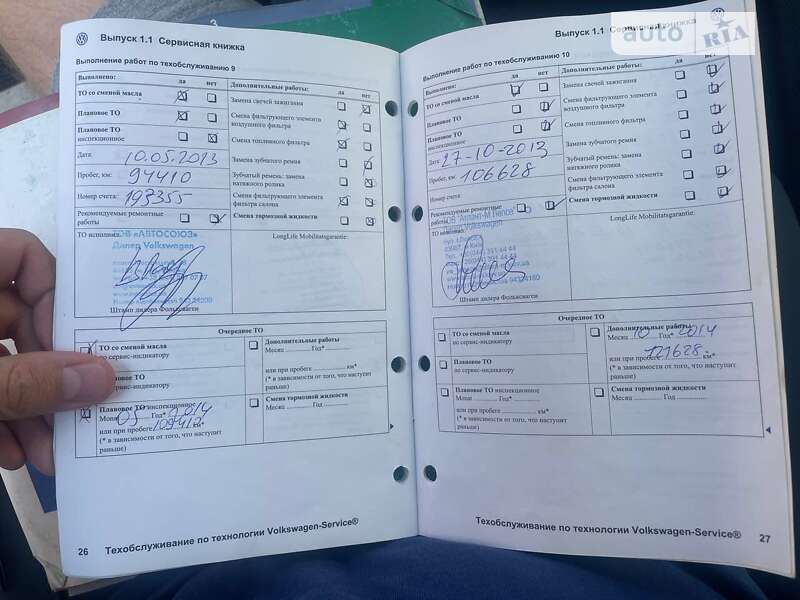 3
auto RIA
Выпуск 1.1 Сервисная книжка
Выполнение работ по техобслуживанию 9
Выполнено: да нет
ТО со сменой масла
Плановое ТО
Плановое ТО
инспекционное
Дата: 10.05.2013
Пробег, км: 94410
Номер счета: 197355
Рекомендуемые ремонтные
работы
Дополнительные работы: да нет
Замена свечей зажигания
Смена фильтрующего элемента
воздушного фильтра
Смена топливного фильтра
Замена зубчатого ремня
Зубчатый ремень: замена
натяжного ролика
Смена фильтрующего элемента
фильтра салона
Смена тормозной жидкости
ТО исполнил:
ТОВ «АВТОСОЮЗ»
Дилер Volkswagen
Штамп дилера Фольксваген
LongLife Mobilitatsgarantie:
Очередное ТО
ТО со сменой масла
по сервис-индикатору
Плановое ТО
по сервис-индикатору
Плановое ТО инспекционное
05 2014 Год*
или при пробеге 109417 км*
(* в зависимости от того, что наступит
раньше)
Дополнительные работы
Месяц Год*
или при пробеге км*
(* в зависимости от того, что наступит
раньше)
Смена тормозной жидкости
Месяц Год
26 Техобслуживание по технологии Volkswagen-Service®
Выпуск 1.1 Сервисная книжка
Выполнение работ по техобслуживанию 10
Выполнено: да нет
ТО со сменой масла
Плановое ТО
Плановое ТО
инспекционное
Дата: 27-10-2013
Пробег, км: 106628
Номер счета:
Рекомендуемые ремонтные
работы
Дополнительные работы: да нет
Замена свечей зажигания
Смена фильтрующего элемента
воздушного фильтра
Смена топливного фильтра
Замена зубчатого ремня
Зубчатый ремень: замена
натяжного ролика
Смена фильтрующего элемента
фильтра салона
Смена тормозной жидкости
ТО исполнил:
Volkswagen
Штамп дилера Фольксваген
LongLife Mobilitatsgarantie:
Очередное ТО
ТО со сменой масла
по сервис-индикатору
Плановое ТО
по сервис-индикатору
Плановое ТО инспекционное
Месяц Год*
или при пробеге км*
(* в зависимости от того, что наступит
раньше)
Дополнительные работы
Месяц 10 Год* 2014
или при пробеге 121628 км*
(* в зависимости от того, что наступит
раньше)
Смена тормозной жидкости
Месяц Год
Техобслуживание по технологии Volkswagen-Service® 27